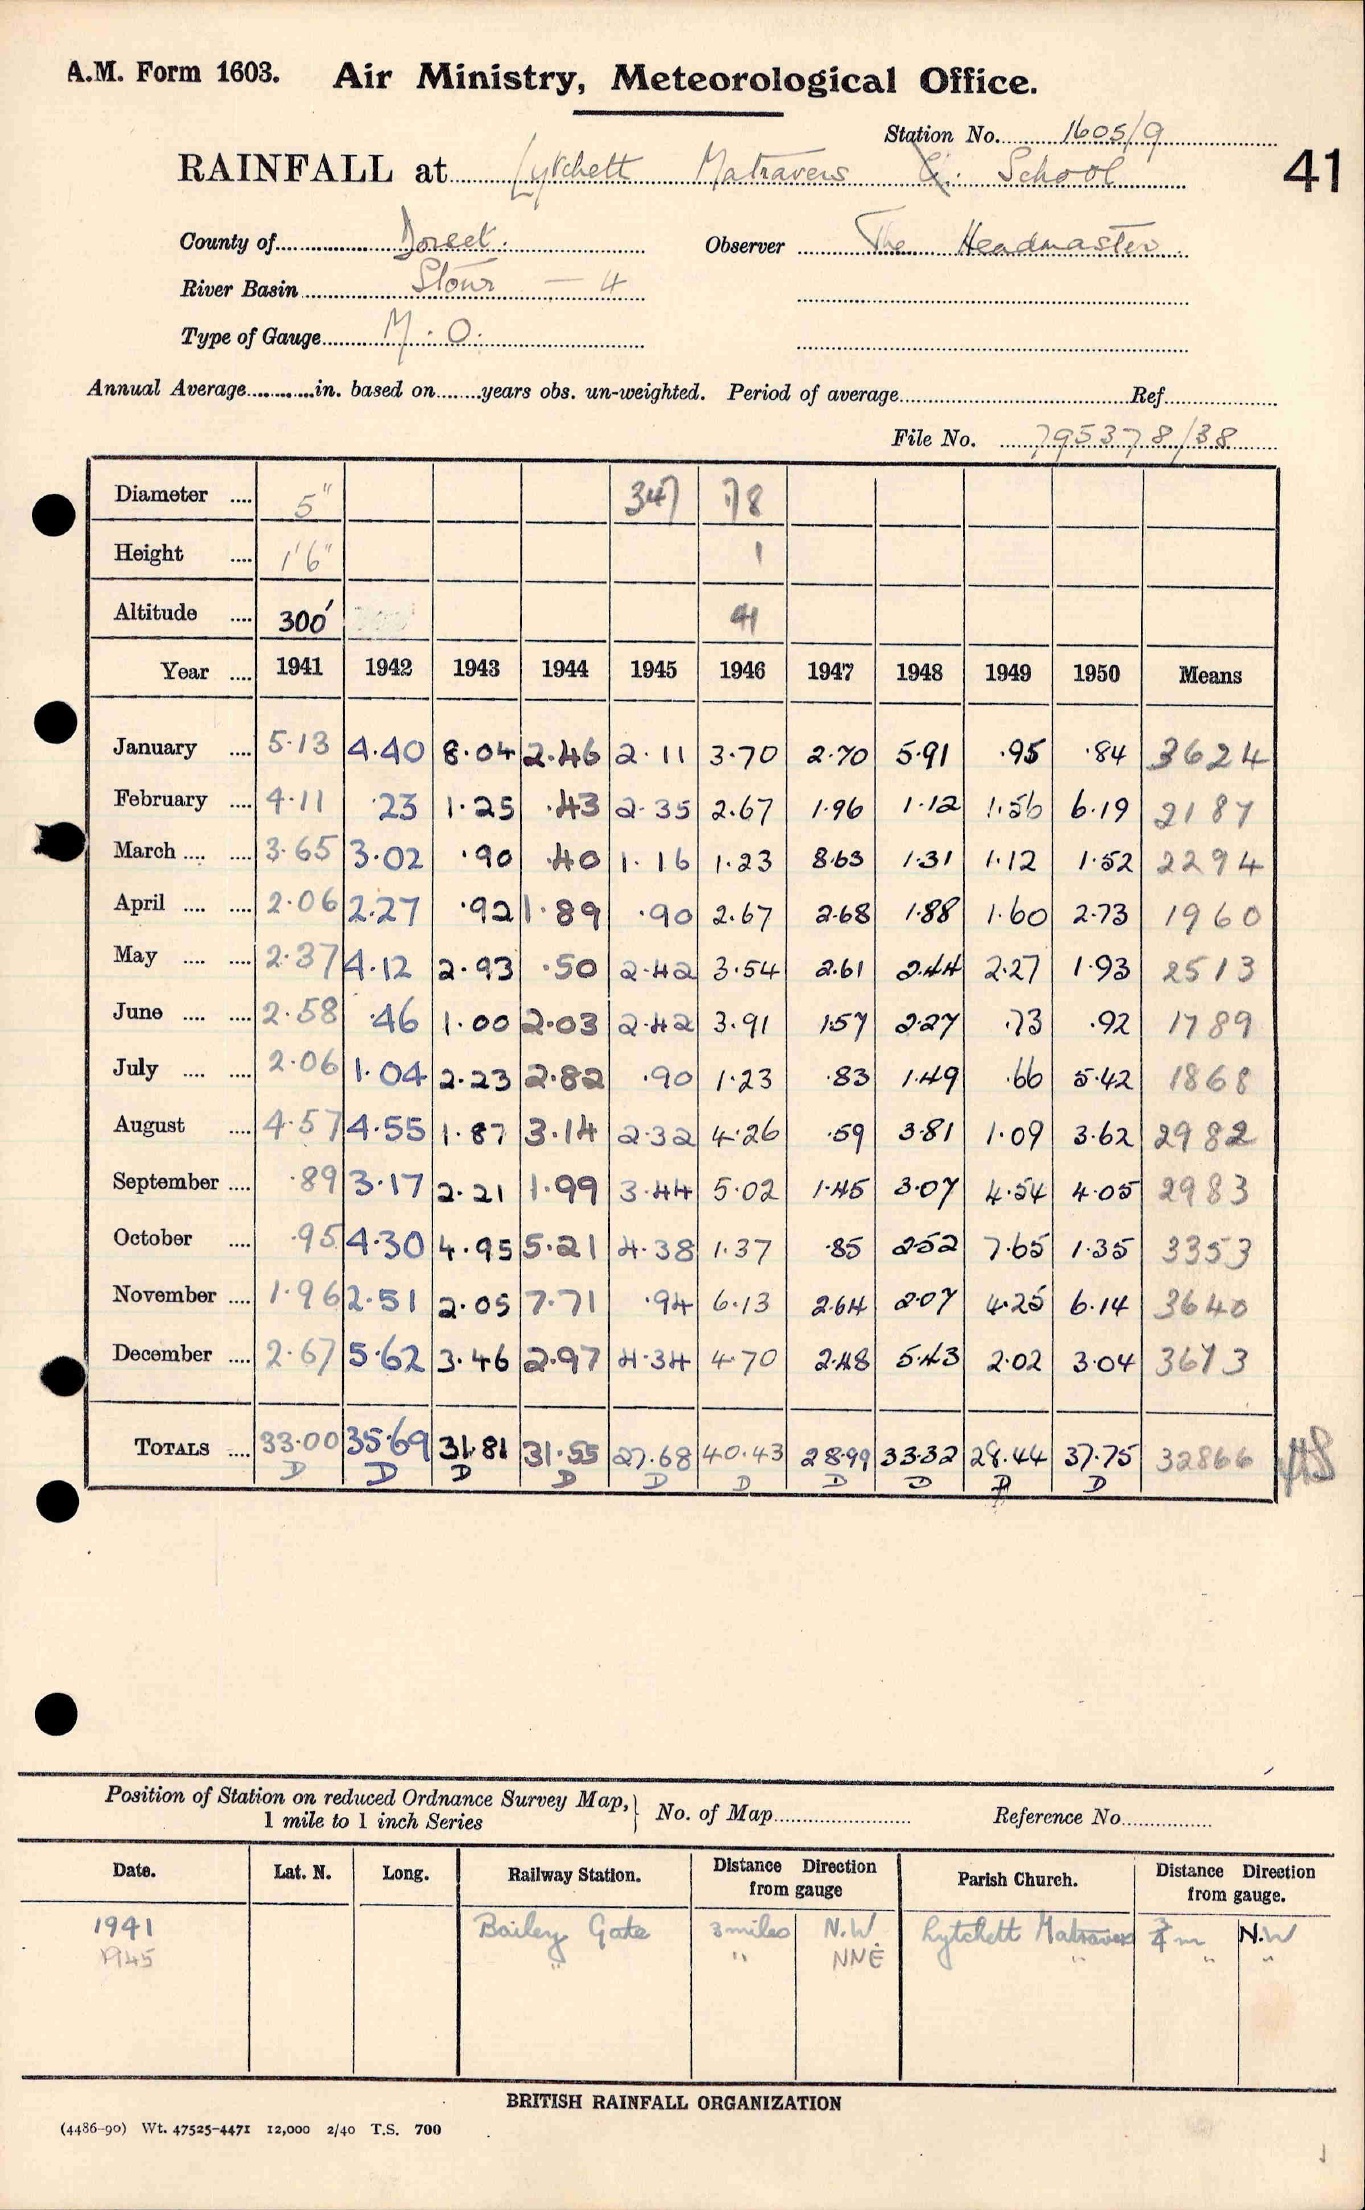 A.M. Form 1603. Air Ministry, Meteorological Office.
Station No. 1605/9
RAINFALL at Lytchett Matravers C. School 41
County of Dorset. Observer The Headmaster.
River Basin Stour — 4
Type of Gauge M.O.
Annual Average in. based on years obs. un-weighted. Period of average Ref.
File No. 795378/38
Diameter .... 5" 347 78
Height .... 1'6" 1
Altitude .... 300' 41
Year .... 1941 1942 1943 1944 1945 1946 1947 1948 1949 1950 Means
January .... 5.13 4.40 8.04 2.46 2.11 3.70 2.70 5.91 .95 .84 3624
February .... 4.11 .23 1.25 .43 2.35 2.67 1.96 1.12 1.56 6.19 2187
March .... .... 3.65 3.02 .90 .40 1.16 1.23 8.63 1.31 1.12 1.52 2294
April .... .... 2.06 2.27 .92 1.89 .90 2.67 2.68 1.88 1.60 2.73 1960
May .... .... 2.37 4.12 2.93 .50 2.42 3.54 2.61 2.44 2.27 1.93 2513
June .... .... 2.58 .46 1.00 2.03 2.42 3.91 1.57 2.27 .73 .92 1789
July .... .... 2.06 1.04 2.23 2.82 .90 1.23 .83 1.49 .66 5.42 1868
August .... 4.57 4.55 1.87 3.14 2.32 4.26 .59 3.81 1.09 3.62 2982
September .... .89 3.17 2.21 1.99 3.44 5.02 1.45 3.07 4.54 4.05 2983
October .... .95 4.30 4.95 5.21 4.38 1.37 .85 2.52 7.65 1.35 3353
November .... 1.96 2.51 2.05 7.71 .94 6.13 2.64 2.07 4.25 6.14 3640
December .... 2.67 5.62 3.46 2.97 4.34 4.70 2.48 5.43 2.02 3.04 3673
TOTALS .... 33.00 35.69 31.81 31.55 27.68 40.43 28.99 33.32 28.44 37.75 32866
D D D D D D D D D D
Position of Station on reduced Ordnance Survey Map, 1 mile to 1 inch Series No. of Map Reference No.
Date. Lat. N. Long. Railway Station. Distance Direction from gauge Parish Church. Distance Direction from gauge.
1941 Bailey Gate 3 miles N.W. Lytchett Matravers 3/4 m N.W
1945 " " NNE " " "
BRITISH RAINFALL ORGANIZATION
(4486-90) Wt. 47525-4471 12,000 2/40 T.S. 700